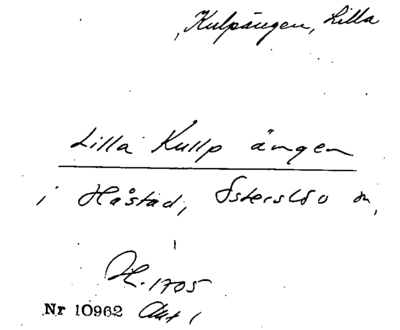 Kulpängen, Lilla
Lilla Kullp ängen
i Håstad, Österslöv sn,
H. 1705
Nr 10962 Akt 1